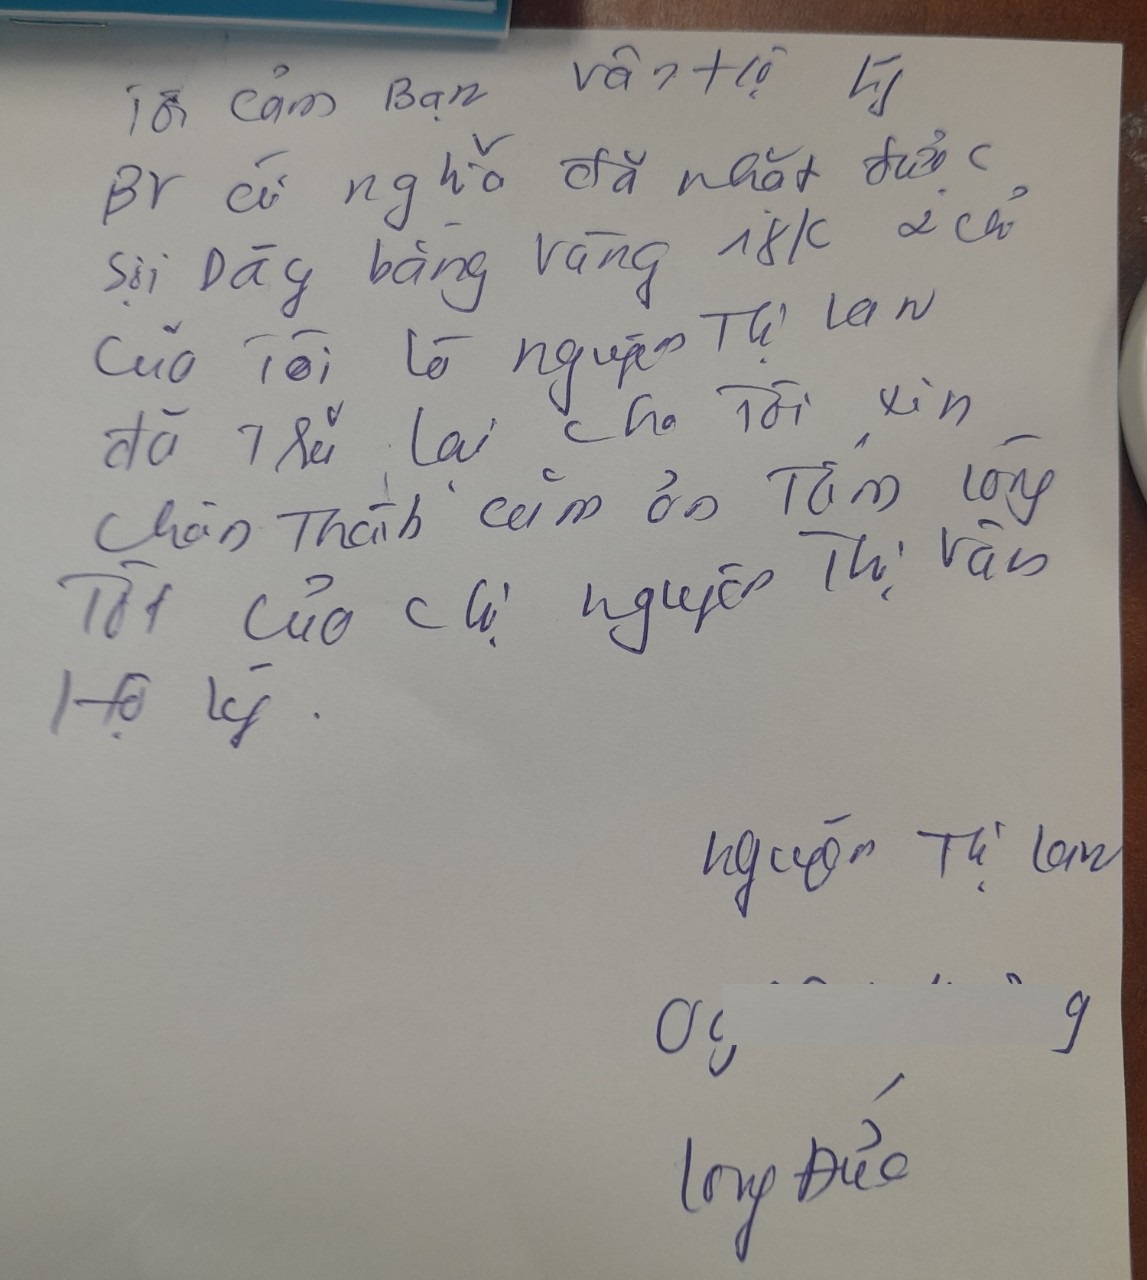 Tôi cảm Bạn Vân Hộ lý
BV có nghỉ đã nhặt được
Sợi Dây bằng Vàng 18/C 2 chỉ
Của Tôi là nguyễn Thị Lan
đã Trả lại cho Tôi xin
Chân Thành cảm ơn Tấm lòng
Tốt Của Chị nguyễn Thị Vân
Hộ lý.
nguyễn Thị Lan
Long Đức